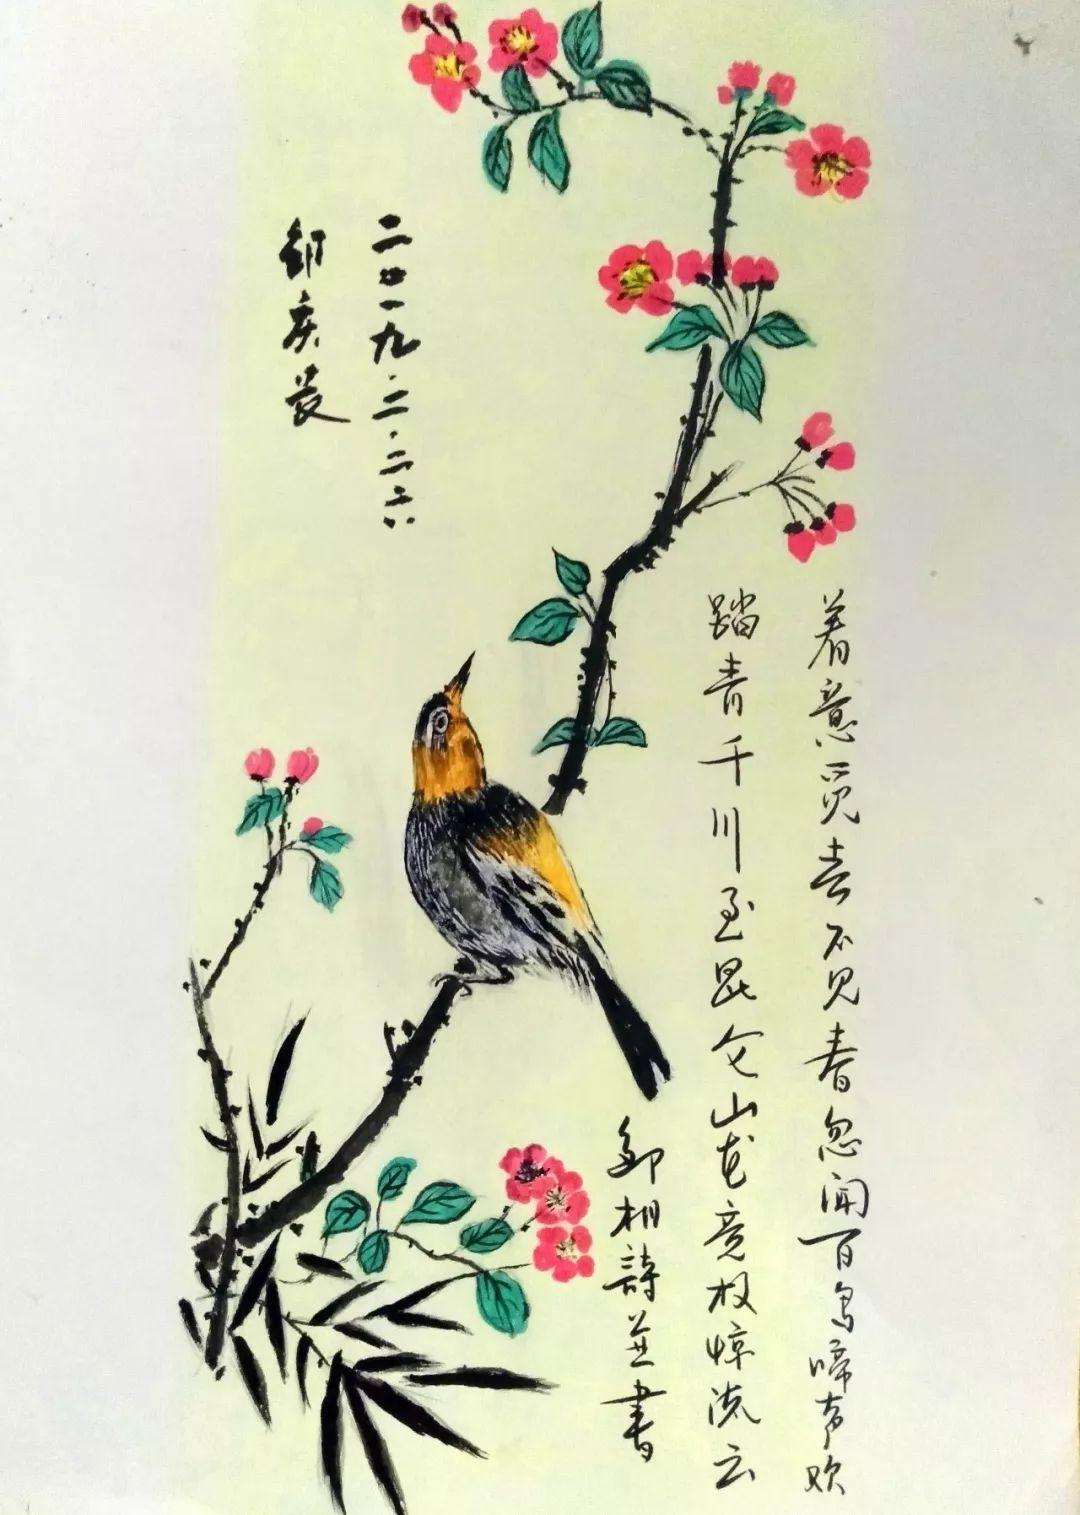 着意觅去不见春忽闻百鸟啼声欢
踏青千川至昆仑山花竞放惊流云
邹相詩並書
二0一九.二.二六
邹庆